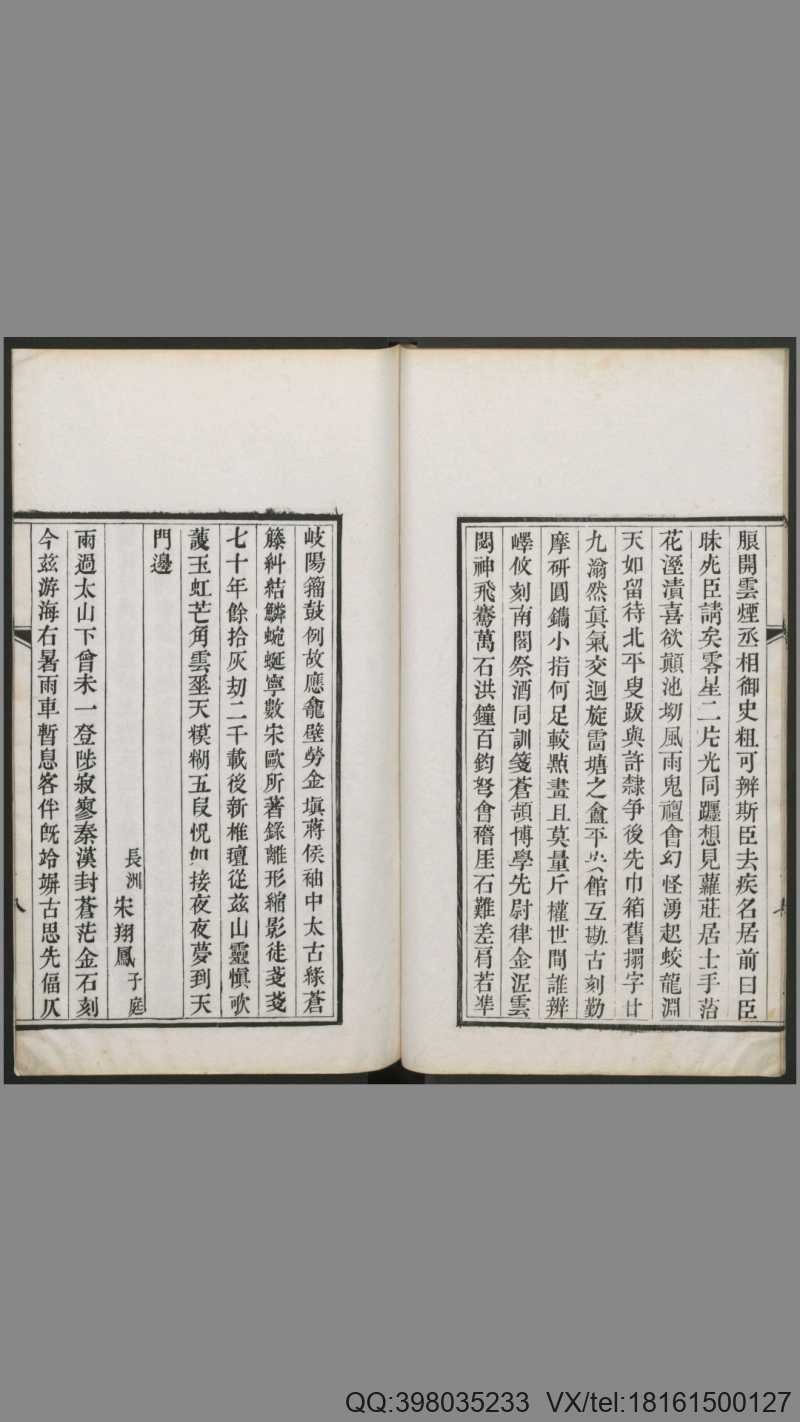 脹開雲煙丞相御史粗可辨斯臣去疾名居前曰臣
昧死臣請矣零星二片光同躔想見蘿莊居士手
花溼漬喜欲顛池坳風雨鬼禮會幻怪湧起蛟龍淵
天如留待北平叟跋與許隸争後先巾箱舊搨字廿
九滃然眞氣交迴旋雷塘之盦平安館互勘古刻勤
摩研圓鐫小指何足較㸃畫且莫量斤權世間誰辨
嶧攸刻南閣祭酒同訓箋蒼頡博學先尉律金泥雲
閟神飛騫萬石洪鐘百鈞弩會稽厓石難差肩若準
岐陽籀鼓例故應龕壁勞金塡蔣侯袖中太古綠蒼
籐糾結鱗蜿蜒寧數宋歐所著錄離形縮影徒戔戔
七十年餘拾灰刼二千載後新椎氊從茲山靈愼呵
護玉虹芒角雲垂天糢糊五叚怳如接夜夜夢到天
門邊
長洲 宋翔鳳 子庭
雨過太山下曾未一登陟寂寥秦漢封蒼茫金石刻
今兹游海右暑雨車暫息客伴旣跲塀古思先偪仄
八
QQ:398035233 VX/tel:18161500127